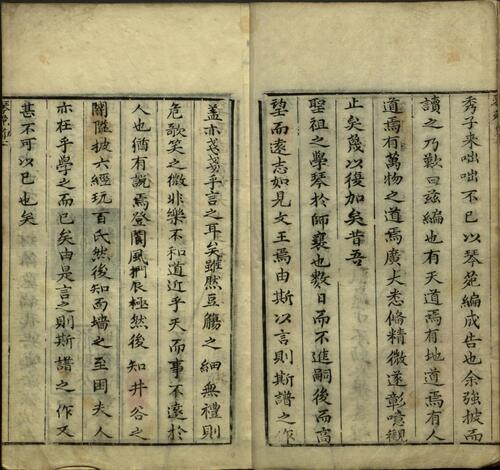 秀子来咄咄不已以琴苑編成告也余強披而
讀之乃歎曰兹編也有天道焉有地道焉有人
道焉有萬物之道焉廣大悉俻精微遂彰噫觀
止矣蔑以復加矣昔吾
聖祖之學琴於師襄也數日而不進嗣後而高
望而遠志如見文王焉由斯以言則斯譜之作
蓋亦戔戔乎言之耳矣雖然豆觴之細無禮則
危歌笑之微非樂不和道近乎天而事不遠於
人也猶有説焉登閬風捫辰極然後知井谷之
闇隘披六經玩百氏然後知面墙之至困夫人
亦在乎學之而已矣由是言之則斯譜之作又
甚不可以已也矣